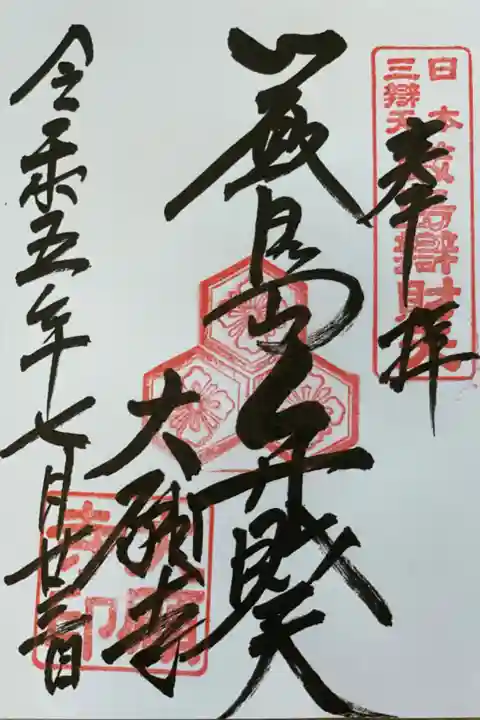 奉拝
日本
三辯天
嚴島辯財天
厳島弁財天
大願寺
大願寺印
令和五年七月廿三日